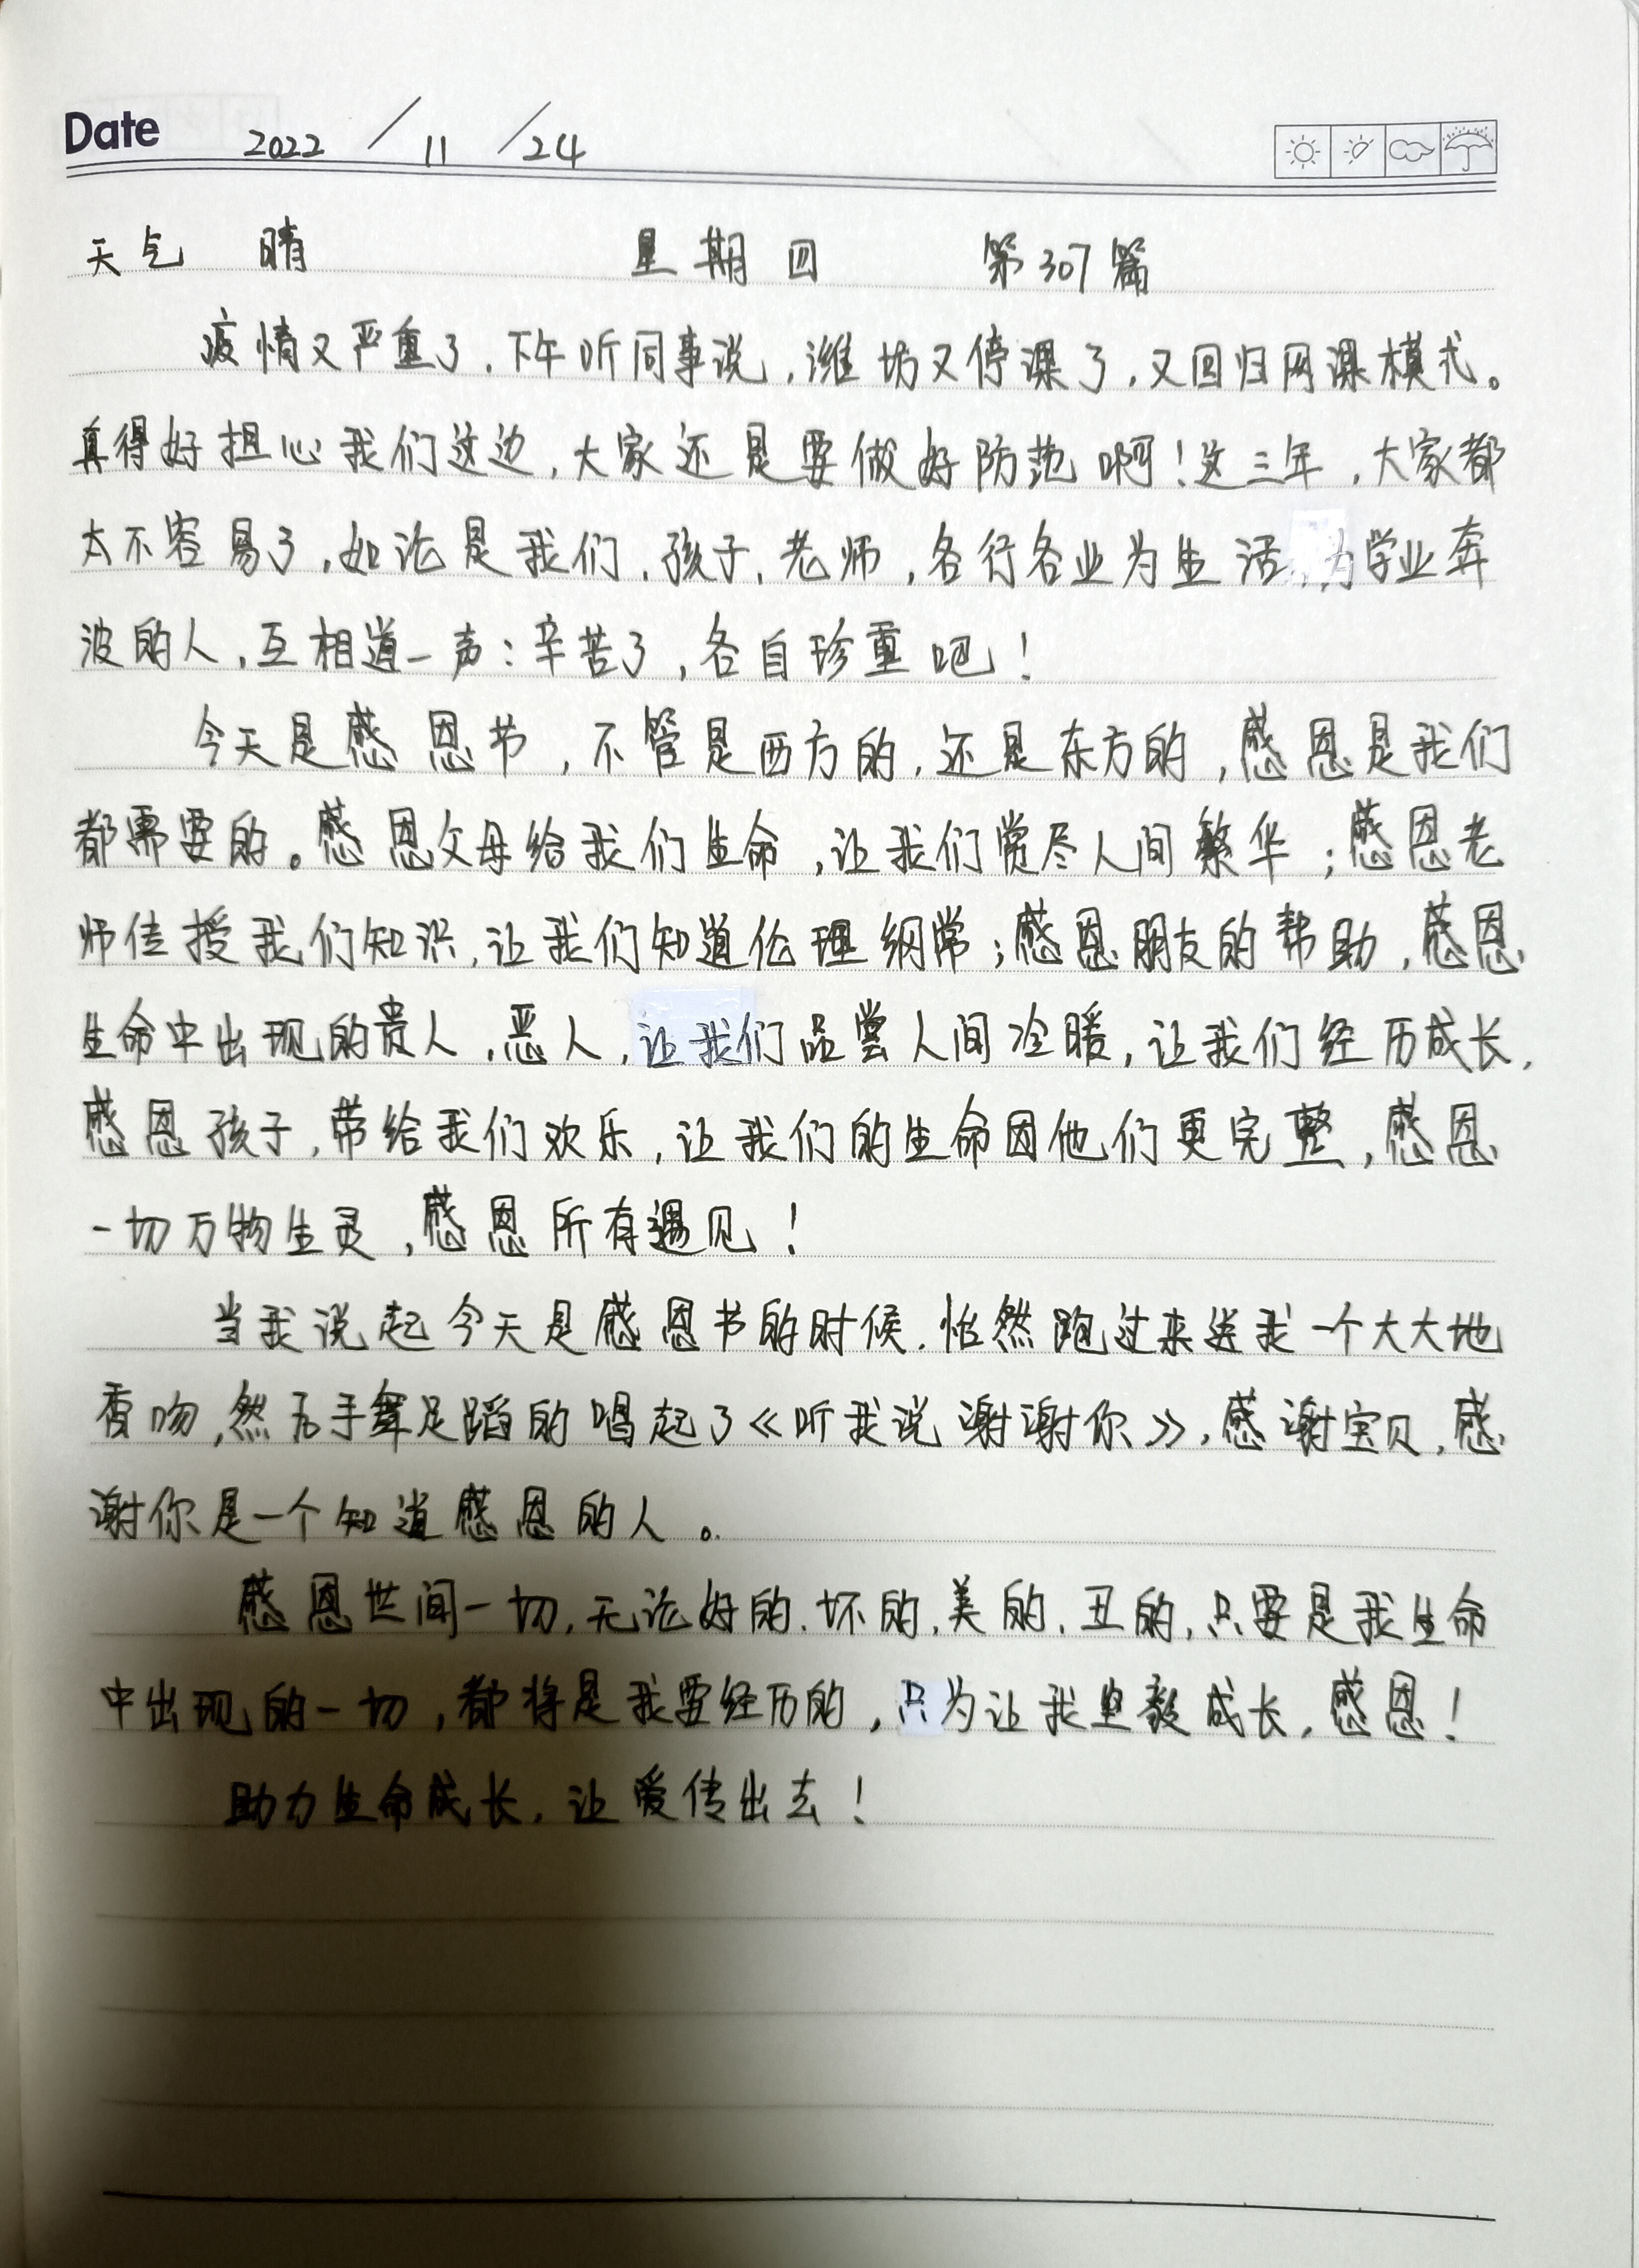 Date 2022 / 11 / 24
天气 晴 星期四 第307篇
疫情又严重了,下午听同事说,潍坊又停课了,又回归网课模式。
真得好担心我们这边,大家还是要做好防范啊!这三年,大家都
太不容易了,如论是我们,孩子,老师,各行各业为生活,为学业奔
波的人,互相道一声:辛苦了,各自珍重吧!
今天是感恩节,不管是西方的,还是东方的,感恩是我们
都需要的。感恩父母给我们生命,让我们赏尽人间繁华;感恩老
师传授我们知识,让我们知道伦理纲常;感恩朋友的帮助,感恩
生命中出现的贵人,恶人,让我们品尝人间冷暖,让我们经历成长,
感恩孩子,带给我们欢乐,让我们的生命因他们更完整,感恩
一切万物生灵,感恩所有遇见!
当我说起今天是感恩节的时候,怡然跑过来送我一个大大地
香吻,然后手舞足蹈的唱起了《听我说谢谢你》,感谢宝贝,感
谢你是一个知道感恩的人。
感恩世间一切,无论好的,坏的,美的,丑的,只要是我生命
中出现的一切,都将是我要经历的,只为让我坚毅成长,感恩!
助力生命成长,让爱传出去!